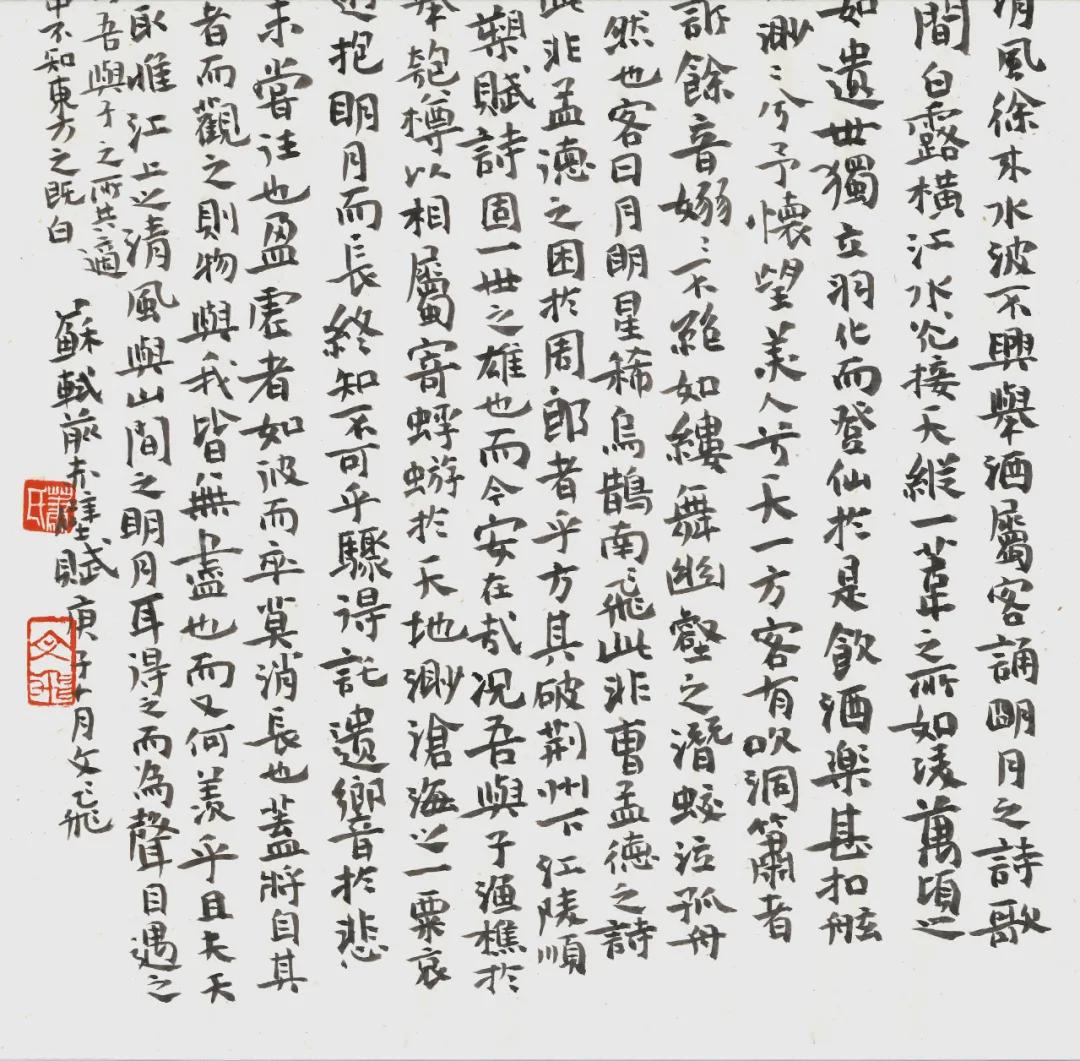 清風徐來水波不興舉酒屬客誦明月之詩歌
間白露橫江水光接天縱一葦之所如淩萬頃之
如遺世獨立羽化而登仙於是飲酒樂甚扣舷
渺〻兮予懷望美人兮天一方客有吹洞簫者
訴餘音嫋〻不絕如縷舞幽壑之潛蛟泣孤舟
然也客曰月明星稀烏鵲南飛此非曹孟德之詩
此非孟德之困於周郎者乎方其破荊州下江陵順
槊賦詩固一世之雄也而今安在哉況吾與子漁樵於
舉匏樽以相屬寄蜉蝣於天地渺滄海之一粟哀
遊抱明月而長終知不可乎驟得託遺響音於悲
未嘗往也盈虛者如彼而卒莫消長也蓋將自其
者而觀之則物與我皆無盡也而又何羨乎且夫天
取惟江上之清風與山間之明月耳得之而為聲目遇之
吾與子之所共適
中不知東方之既白
蘇軾前赤壁賦庚子十月文飛
蕭氏
文飛